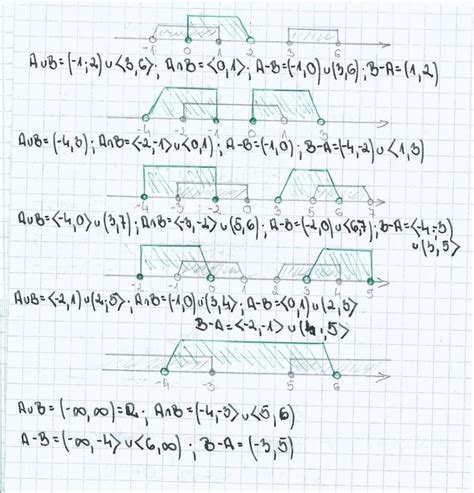 -1 0 1 2 3 6
A∪B=(-1;2)∪<3,6>; A∩B=<0,1>; A-B=(-1,0)∪<3,6>; B-A=(1,2)
-4 -2 -1 0 1 3
A∪B=(-4,3); A∩B=<-2,-1>∪<0,1); A-B=(-1,0); B-A=(-4,-2)∪<1,3)
-4 -3 -2 0 3 5 6 7
A∪B=<-4,0)∪(3,7); A∩B=<-3,-2>∪(5,6); A-B=(-2,0)∪<6,7); B-A=<-4,-3)
∪(3,5>
-2 -1 0 1 2 3 4 5
A∪B=<-2,1)∪(2;5>; A∩B=(-1,0)∪(3,4>; A-B=<0,1)∪(2,3>
B-A=<-2,-1>∪(4;5>
-4 -3 5 6
A∪B=(-∞,∞)=R; A∩B=(-4,-3>∪<5,6)
A-B=(-∞,-4>∪<6,∞); B-A=(-3,5)